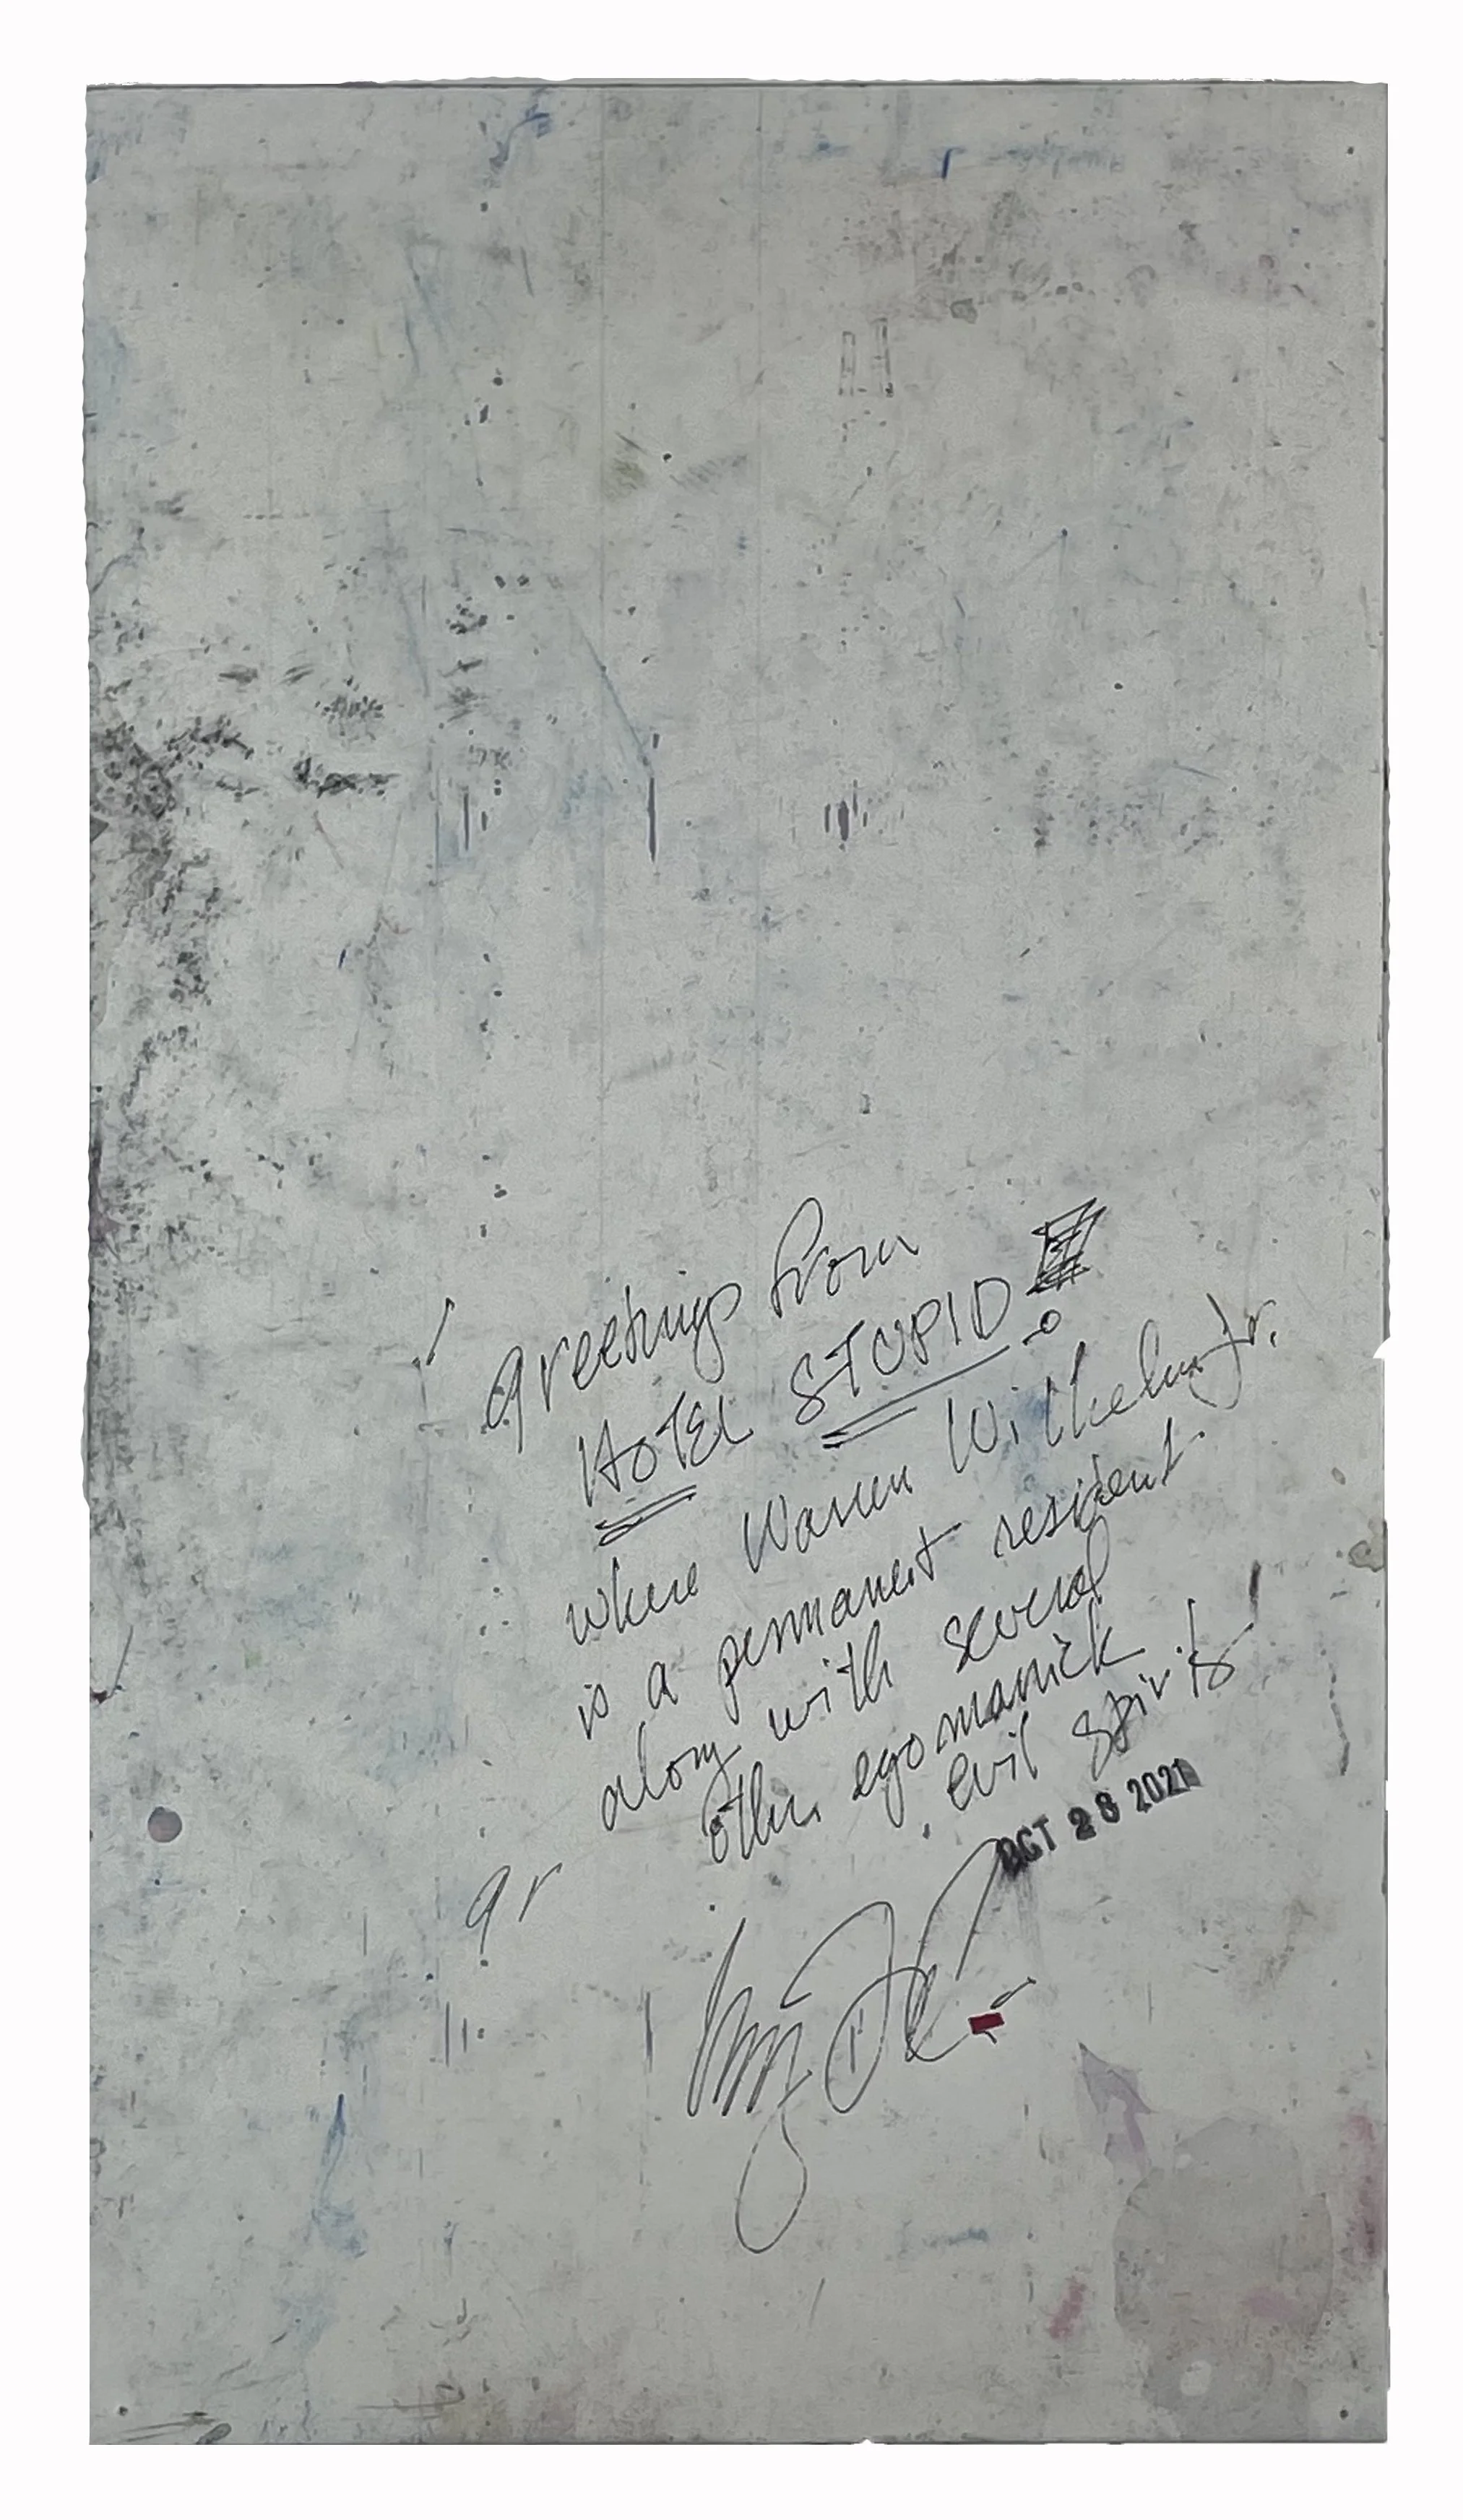 Greetings from
HOTEL STUPID
where Warren Wilhelm Jr.
is a permanent resident.
along with several
other egomanick
evil spirits!
OCT 28 2021
gr